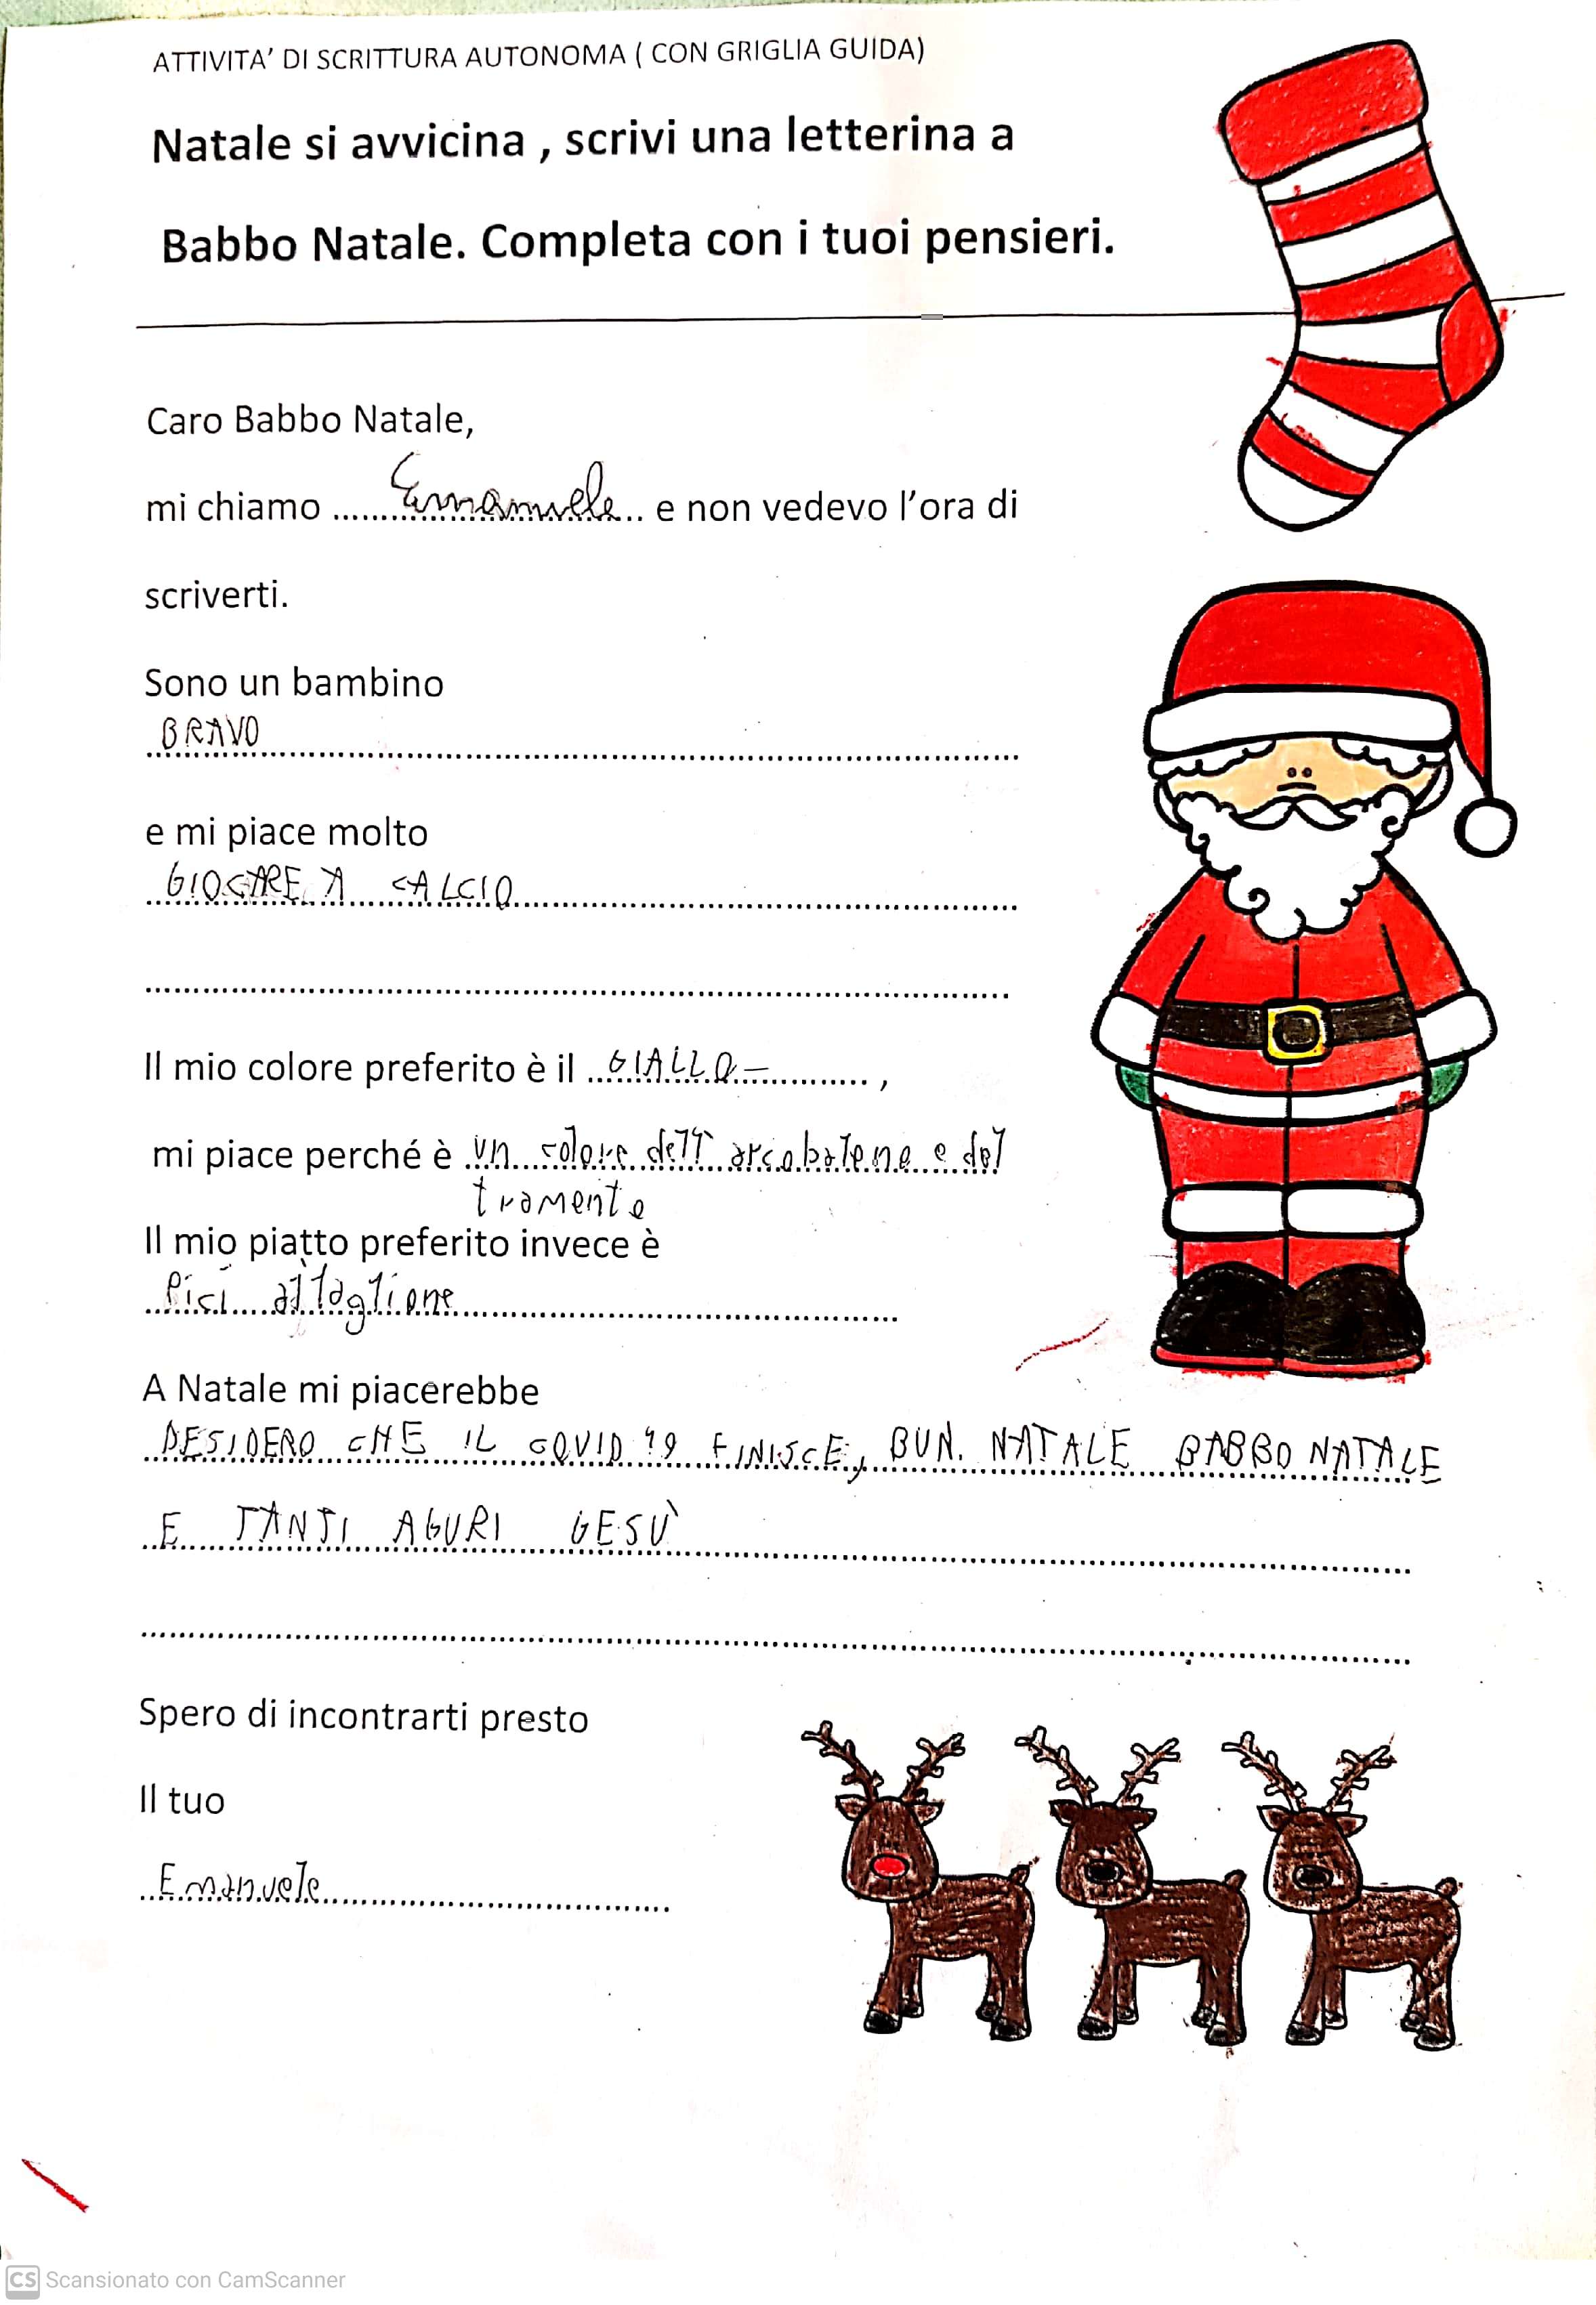 ATTIVITA' DI SCRITTURA AUTONOMA ( CON GRIGLIA GUIDA)
Natale si avvicina , scrivi una letterina a
Babbo Natale. Completa con i tuoi pensieri.
Caro Babbo Natale,
mi chiamo ......Emanuele.. e non vedevo l'ora di
scriverti.
Sono un bambino
BRAVO
e mi piace molto
GIOCARE A CALCIO
Il mio colore preferito è il ..GIALLO-.......... ,
mi piace perché è un colore dell'arcobaleno e del
tramento
Il mio piatto preferito invece è
Pici all'aglione
A Natale mi piacerebbe
DESIDERO CHE IL COVID 19 FINISCE, BUN. NATALE BABBO NATALE
E TANTI AGURI GESÙ
Spero di incontrarti presto
Il tuo
Emanuele
CS Scansionato con CamScanner